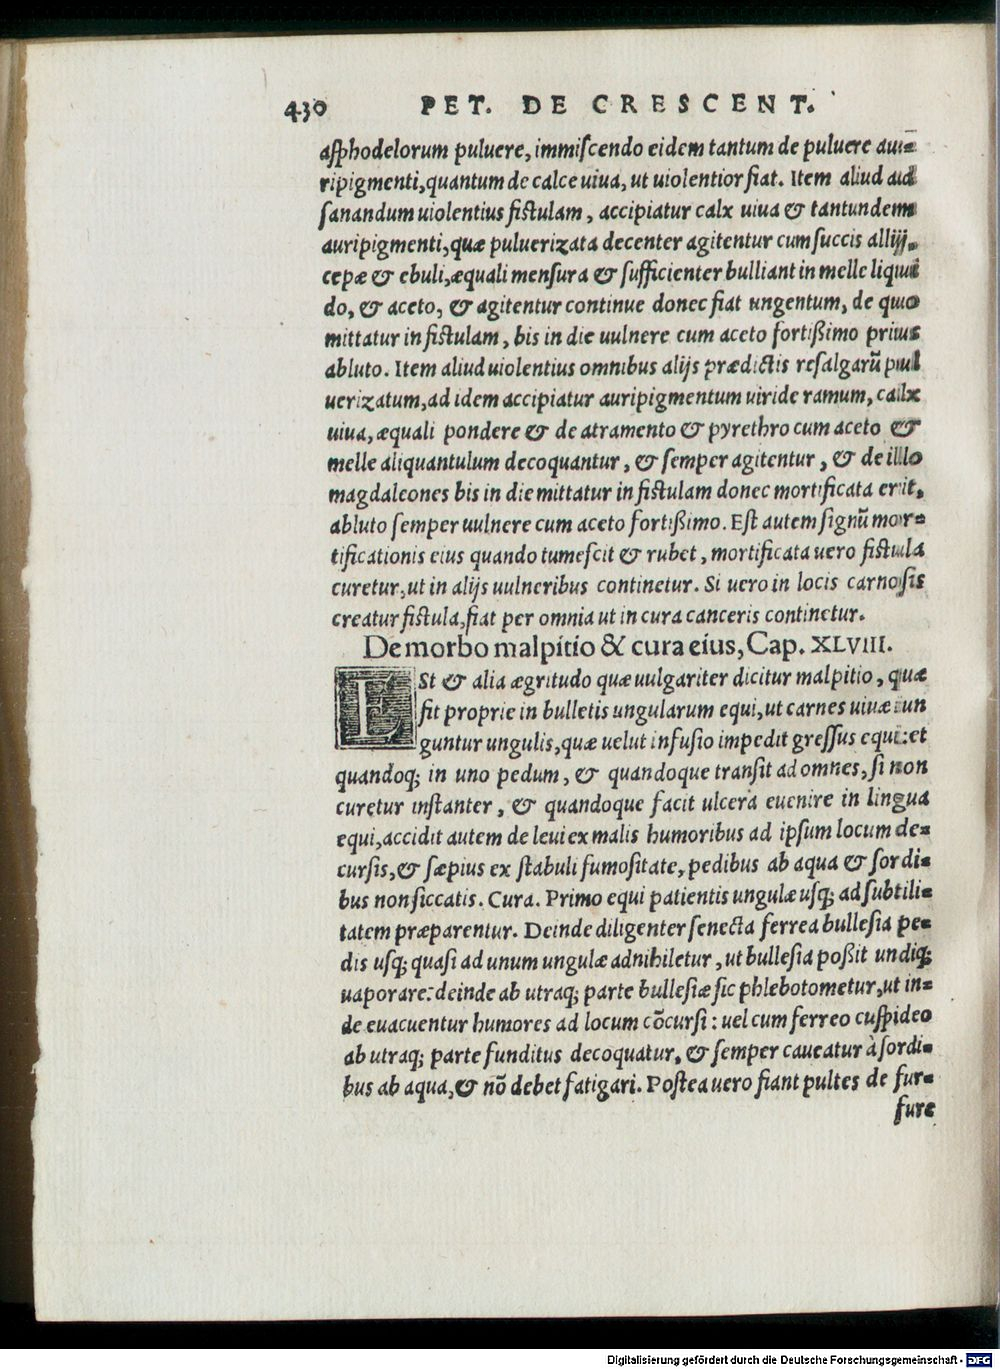 430 PET. DE CRESCENT.
asphodelorum puluere, immiscendo eidem tantum de puluere au=
ripigmenti, quantum de calce uiua, ut uiolentior fiat. Item aliud ad
sanandum uiolentius fistulam, accipiatur calx uiua & tantundem
auripigmenti, quæ puluerizata decenter agitentur cum succis allij,
cepæ & ebuli, æquali mensura & sufficienter bulliant in melle liqui
do, & aceto, & agitentur continue donec fiat ungentum, de quo
mittatur in fistulam, bis in die uulnere cum aceto fortißimo prius
abluto. Item aliud uiolentius omnibus alijs prædictis resalgarũ pul
uerizatum, ad idem accipiatur auripigmentum uiride ramum, calx
uiua, æquali pondere & de atramento & pyrethro cum aceto &
melle aliquantulum decoquantur, & semper agitentur, & de illo
magdaleones bis in die mittatur in fistulam donec mortificata erit,
abluto semper uulnere cum aceto fortißimo. Est autem signũ mor=
tificationis eius quando tumescit & rubet, mortificata uero fistula
curetur, ut in alijs uulneribus continetur. Si uero in locis carnosis
creatur fistula, fiat per omnia ut in cura canceris continetur.
De morbo malpitio & cura eius, Cap. XLVIII.
ESt & alia ægritudo quæ uulgariter dicitur malpitio, quæ
fit proprie in bulletis ungularum equi, ut carnes uiuæ iun
guntur ungulis, quæ uelut infusio impedit gressus equi: et
quandoq; in uno pedum, & quandoque transit ad omnes, si non
curetur instanter, & quandoque facit ulcera euenire in lingua
equi, accidit autem de leui ex malis humoribus ad ipsum locum de=
cursis, & sæpius ex stabuli fumositate, pedibus ab aqua & sordi=
bus non siccatis. Cura. Primo equi patientis ungulæ usq; ad subtili=
tatem præparentur. Deinde diligenter senecta ferrea bullesia pe=
dis usq; quasi ad unum ungulæ adnihiletur, ut bullesia poßit undiq;
uaporare: deinde ab utraq; parte bullesiæ sic phlebotometur, ut in=
de euacuentur humores ad locum cõcursi: uel cum ferreo cuspideo
ab utraq; parte funditus decoquatur, & semper caueatur à sordi=
bus ab aqua, & nõ debet fatigari. Postea uero fiant pultes de fur=
fure
Digitalisierung gefördert durch die Deutsche Forschungsgemeinschaft - DFG